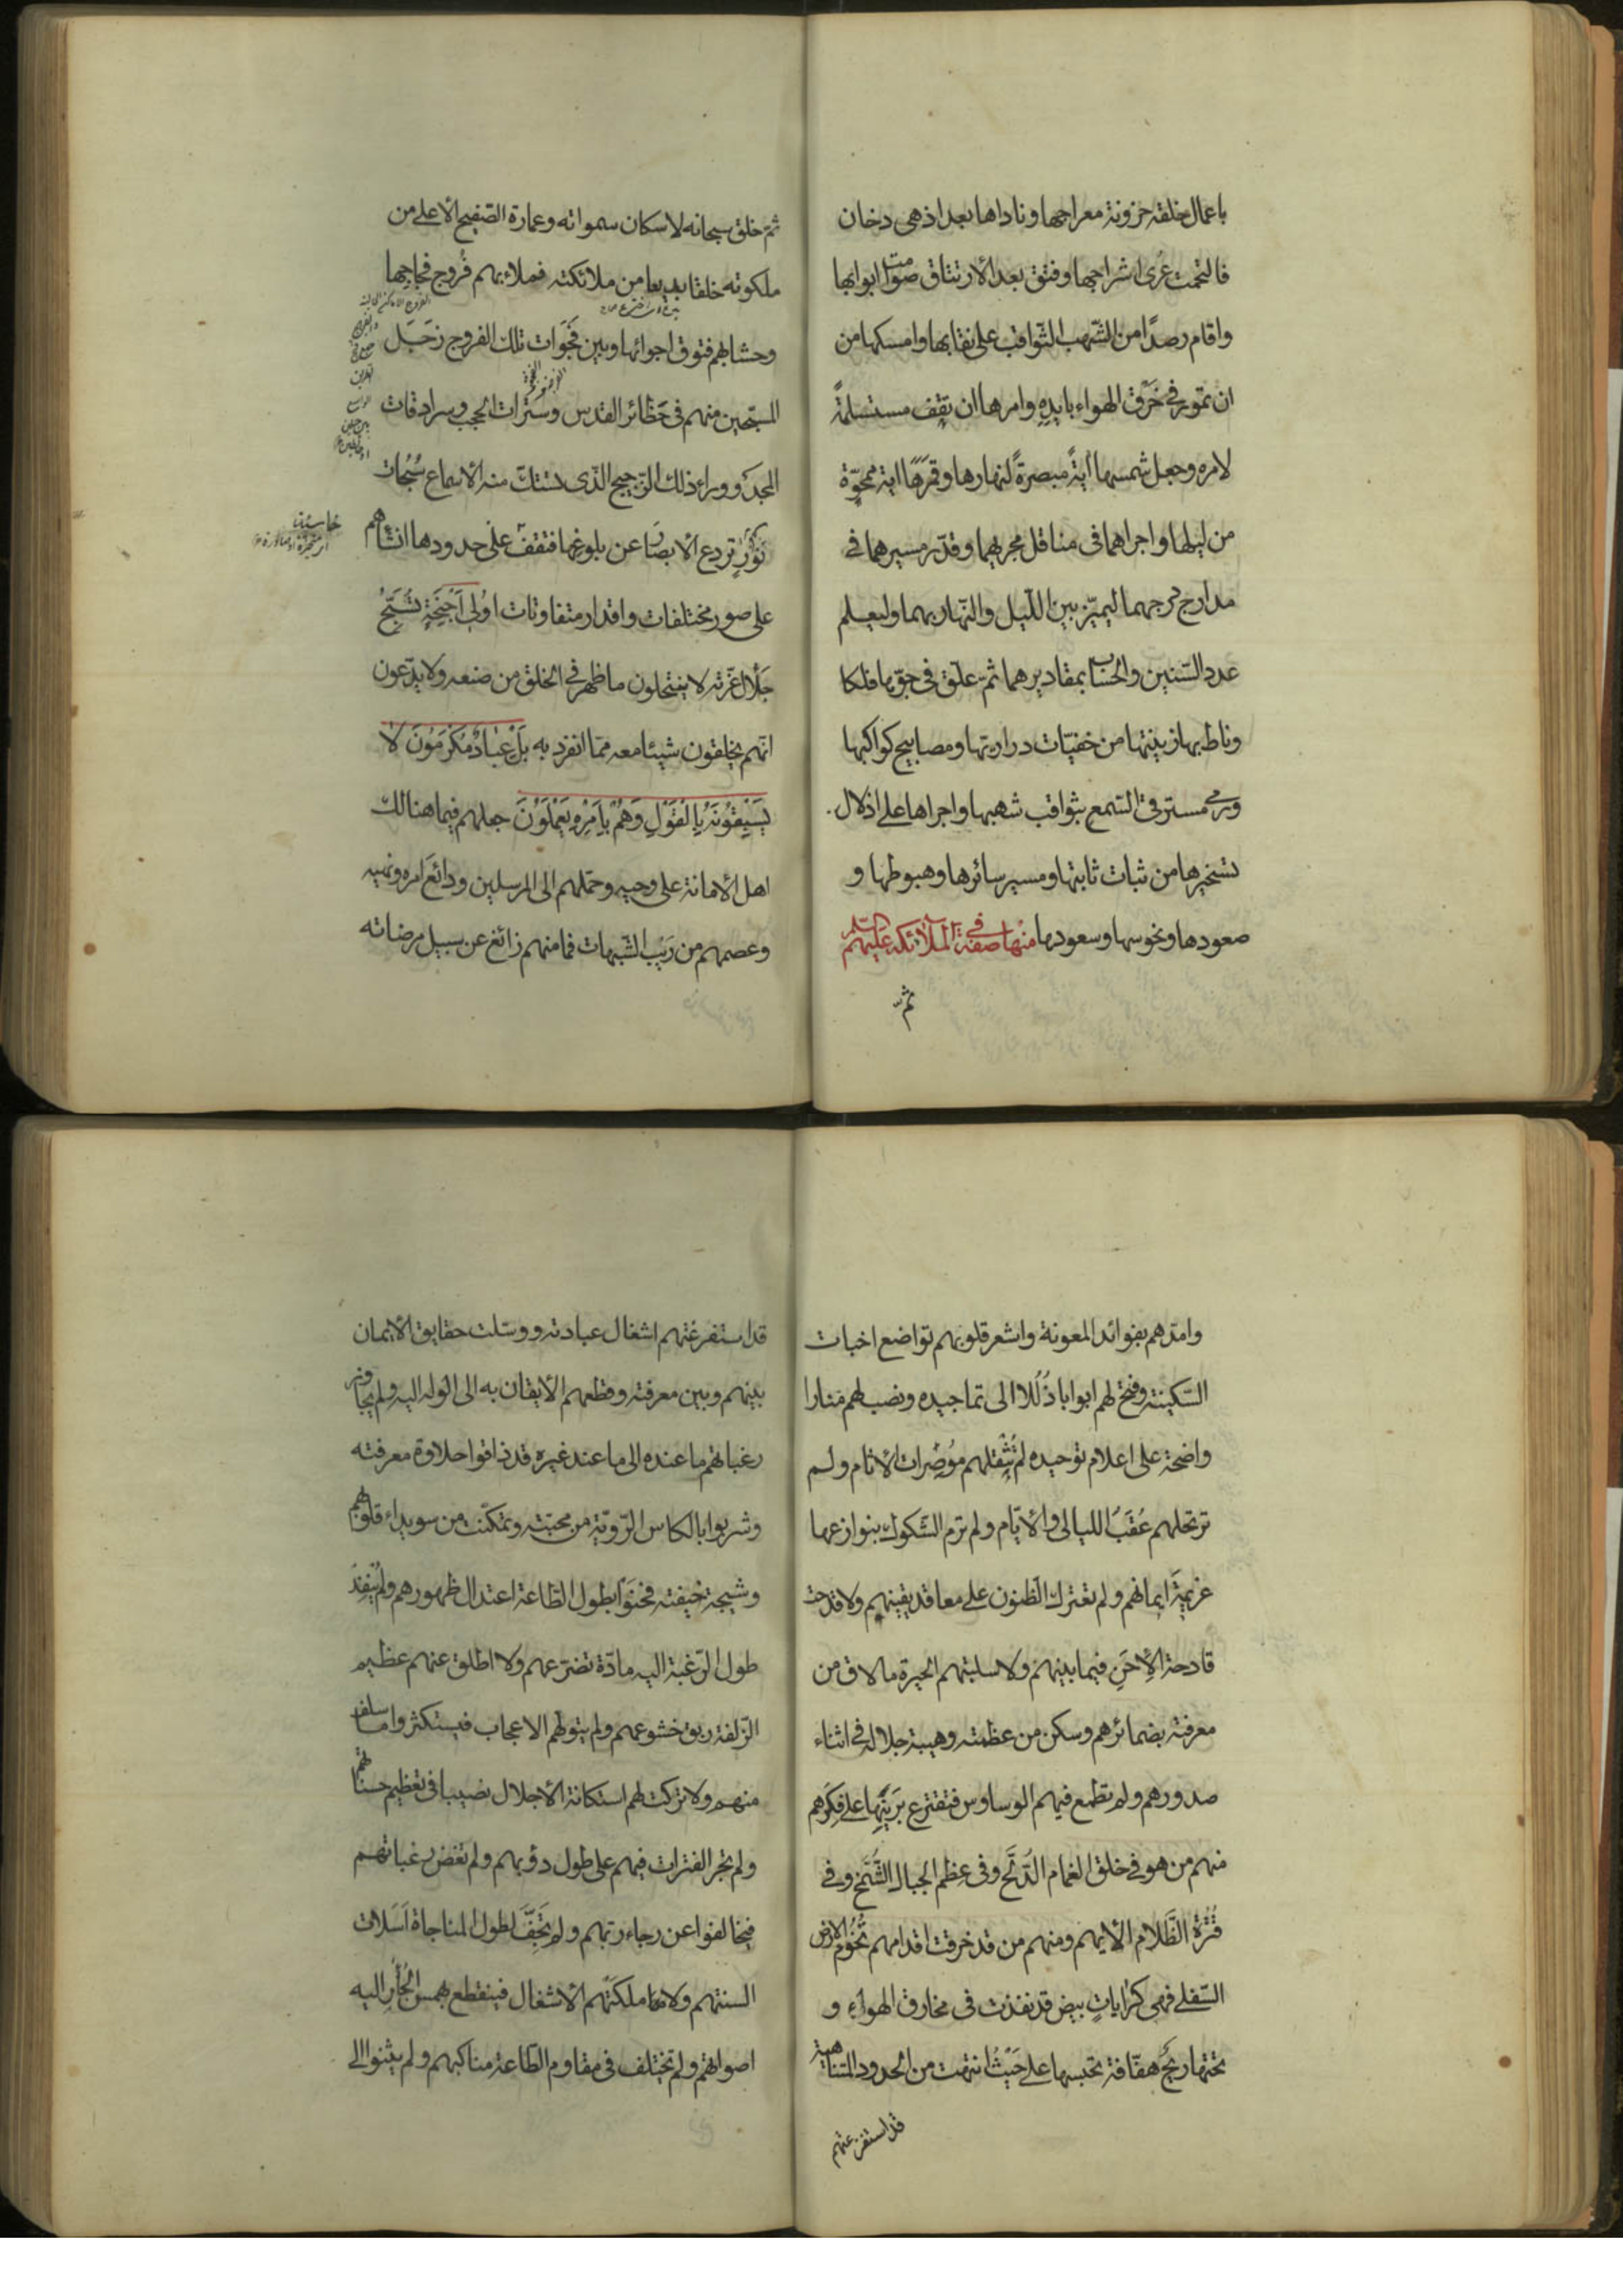 باعمال خلقه حزونة معراجها وناداها بعد اذ هى دخان
فالتحمت عُرى اشراجها وفتق بعد الارتتاق صوامت ابوابها
واقام رصدًا من الشّهب الثّواقب على نقابها وامسكها من
ان تمور فى خَرْق الهواء بايدِهِ وامرها ان تقِف مستسلمةً
لامره وجعل شمسها ايةً مبصرةً لنهارها وقمرَهَا اية ممحوّة
من ليلها واجراهما فى مناقل مجريهما وقدّر مسيرهما فى
مدارج درجهما ليميّز بين اللّيل والنّهار بهما وليعلم
عدد السّنين والحساب بمقاديرهما ثمّ علّق فى جوّها فلكا
وناط بها زينتها من خفيّات دراريّها ومصابيح كواكبها
ورمى مسترقى السّمع بثواقب شهبها واجراها على اذلال
تسخيرها من ثبات ثابتها ومسير سائرها وهبوطها و
صعودها ونحوسها وسعودها منها فى صفة الملائكه عليهم السّلم
ثمّ
ثمّ خلق سبحانه لاسكان سمواته وعمارة الصّفيح الاعلى من
ملكوته خلقا بديعا من ملائكته فملاء بهم فُروج فجاجها
وحشابهم فتوق اجوائها وبين فَجَوَات تلك الفروج زَجَل
المسبّحين منهم فى حَظائر القدس وسترات الحجب وسرادقات
المجد ووراء ذلك الرّجيج الّذى تستكّ منه الاسماع سُبُحات
نورٍ تردع الابصار عن بلوغها فتقف على حدودها انشأهم
خاسئة
على صور مختلفات واقدار متفاوتات اولى اَجْنِحَةٍ تُسَبِّحُ
جَلالَ عزّته لا ينتحلون ما ظهر فى الخلق من صنعه ولا يدّعون
انّهم يخلقون شيئا معه ممّا انفرد به بَلْ عِبَادٌ مُكْرَمُونَ لا
يَسْبِقُونَهُ بِالْقَوْلِ وَهُمْ بِاَمْرِهِ يَعْمَلُونَ جعلهم فيما هنالك
اهل الامانة على وحيه وحمّلهم الى المرسلين ودائعَ امره ونهيه
وعصمهم من رَيْبِ الشّبهات فما منهم زائغ عن سبيل مرضاته
وامدّهم بفوائد المعونة واشعر قلوبهم تواضع اخبات
السّكينة وفتح لهم ابوابا ذُلُلا الى تماجيده ونصب لهم منارا
واضحة على اعلام توحيده لم تُثْقِلهم مُوْصِرات الاثام ولم
ترتحلهم عُقَبُ الليالى والايّام ولم ترم الشّكوك بنوازعها
عزيمةَ ايمانهم ولم تعترك الظّنون على معاقد يقينهم ولا قدحت
قادحة الاِحَنِ فيما بينهم ولا سلبتهم الحيرة ما لاق من
معرفته بضمائرهم وسكن من عظمته وهيبة جلاله فى اثناء
صدورهم ولم تطمع فيهم الوساوس فتقترع برَيْنها على فكرهم
منهم من هو فى خلق الغمام الدُّلَّح وفى عِظَم الجبال الشُّمَّخ وفى
قُتْرَة الظَّلام الايهم ومنهم من قد خرقت اقدامهم تُخُومَ الارض
السّفلى فهى كرايات بيض قد نفذت فى مخارق الهواء و
تحتها ريحٌ هفّافة تحبسها على حَيْثُ انتهت من الحدود المتناهية
قد استفرغتهم
قد استفرغتهم اشغال عبادته ووسّلت حقايق الايمان
بينهم وبين معرفته وقطعهم الايقان به الى الوله اليه ولم يجاوز
رغباتهم ما عنده الى ما عند غيره قد ذاقوا حلاوة معرفته
وشربوا بالكاس الرّويّة من محبّته وتمكّنت من سويداء قلوبهم
وشيجة خيفته فحنَوْا بطول الطّاعة اعتدال ظهورهم ولم يُنْفِدْ
طول الرّغبة اليه مادّة تضرّعهم ولا اطلق عنهم عظيم
الزّلفة ربق خشوعهم ولم يتولّهم الاعجاب فيستكثروا ما سلف
منهم ولا تركت لهم استكانة الاجلال نصيبا فى تعظيم حسناتهم
ولم تجر الفترات فيهم على طول دؤبهم ولم تغض رغباتهم
فيخالفوا عن رجاء ربّهم ولم تَجِفَّ لطول المناجاة اَسَلات
السنتهم ولا ملكَتْهم الاشغال فينقطع بهمس الجُؤَارِ اليه
اصواتهم ولم تختلف فى مقاوم الطّاعة مناكبهم ولم يثنوا الى